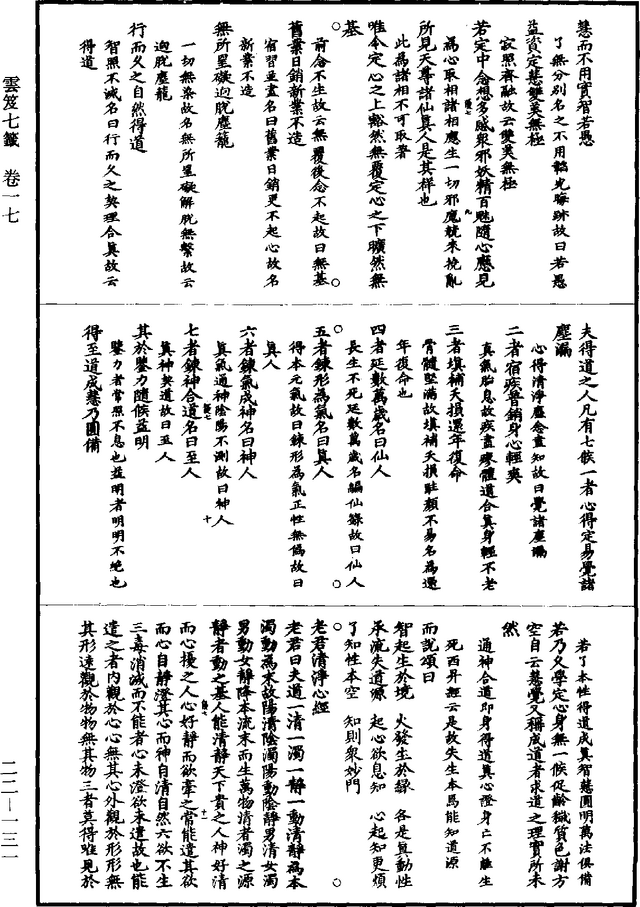 雲笈七籤　卷一七
慧而不用實智若愚
了無分別名之不用韜光晦跡故曰若愚
益資定慧雙美無極
寂照齊融故云雙美無極
若定中念想多感眾邪妖精百魅隨心應見
為心取相諸相應生一切邪魔競來撓亂
所見天尊諸仙真人是其祥也
此為諸相不可取著
唯令定心之上豁然無覆定心之下曠然無
基
前念不生故云無覆後念不起故曰無基
舊業日銷新業不造
宿習並盡名曰舊業日銷更不起心故名
新業不造
無所罣礙迥脫塵籠
一切無染故名無所罣礙解脫無繫故云
迥脫塵籠
行而久之自然得道
智照不滅名曰行而久之契理合真故云
得道
夫得道之人凡有七候一者心得定易覺諸
塵漏
心得清淨塵念盡知故曰覺諸塵漏
二者宿疾普銷身心輕爽
真氣胎息故疾盡瘳體道合真身輕不老
三者填補夭損還年復命
骨髓堅滿故填補夭損駐顏不易名為還
年復命也
四者延數萬歲名曰仙人
長生不死延數萬歲名編仙籙故曰仙人
五者鍊形為氣名曰真人
得本元氣故曰鍊形為氣正性無偽故曰
真人
六者鍊氣成神名曰神人
真氣通神陰陽不測故曰神人
七者鍊神合道名曰至人
真神契道故曰至人
其於鑒力隨候益明
鑒力者常照不息也益明者明明不絕也
得至道成慧乃圓備
若了本性得道成真智慧圓明萬法俱備
若乃久學定心身無一候促齡穢質色謝方
空自云慧覺又稱成道者求道之理實所未
然
通神合道即身得道真心證身亡不離生
死西昇經云是故失生本焉能知道源
而說頌曰
智起生於境　火發生於緣　各是真動性
承流失道源　起心欲息知　心起知更煩
了知性本空　知則眾妙門
老君清淨心經
老君曰夫道一清一濁一靜一動清靜為本
濁動為末故陽清陰濁陽動陰靜男清女濁
男動女靜降本流末而生萬物清者濁之源
靜者動之基人能清靜天下貴之人神好清
而心擾之人心好靜而欲牽之常能遣其欲
而心自靜澄其心而神自清自然六欲不生
三毒消滅而不能者心未澄欲未遣故也能
遣之者內觀於心心無其心外觀於形形無
其形遠觀於物物無其物三者莫得唯見於
二二—一三一